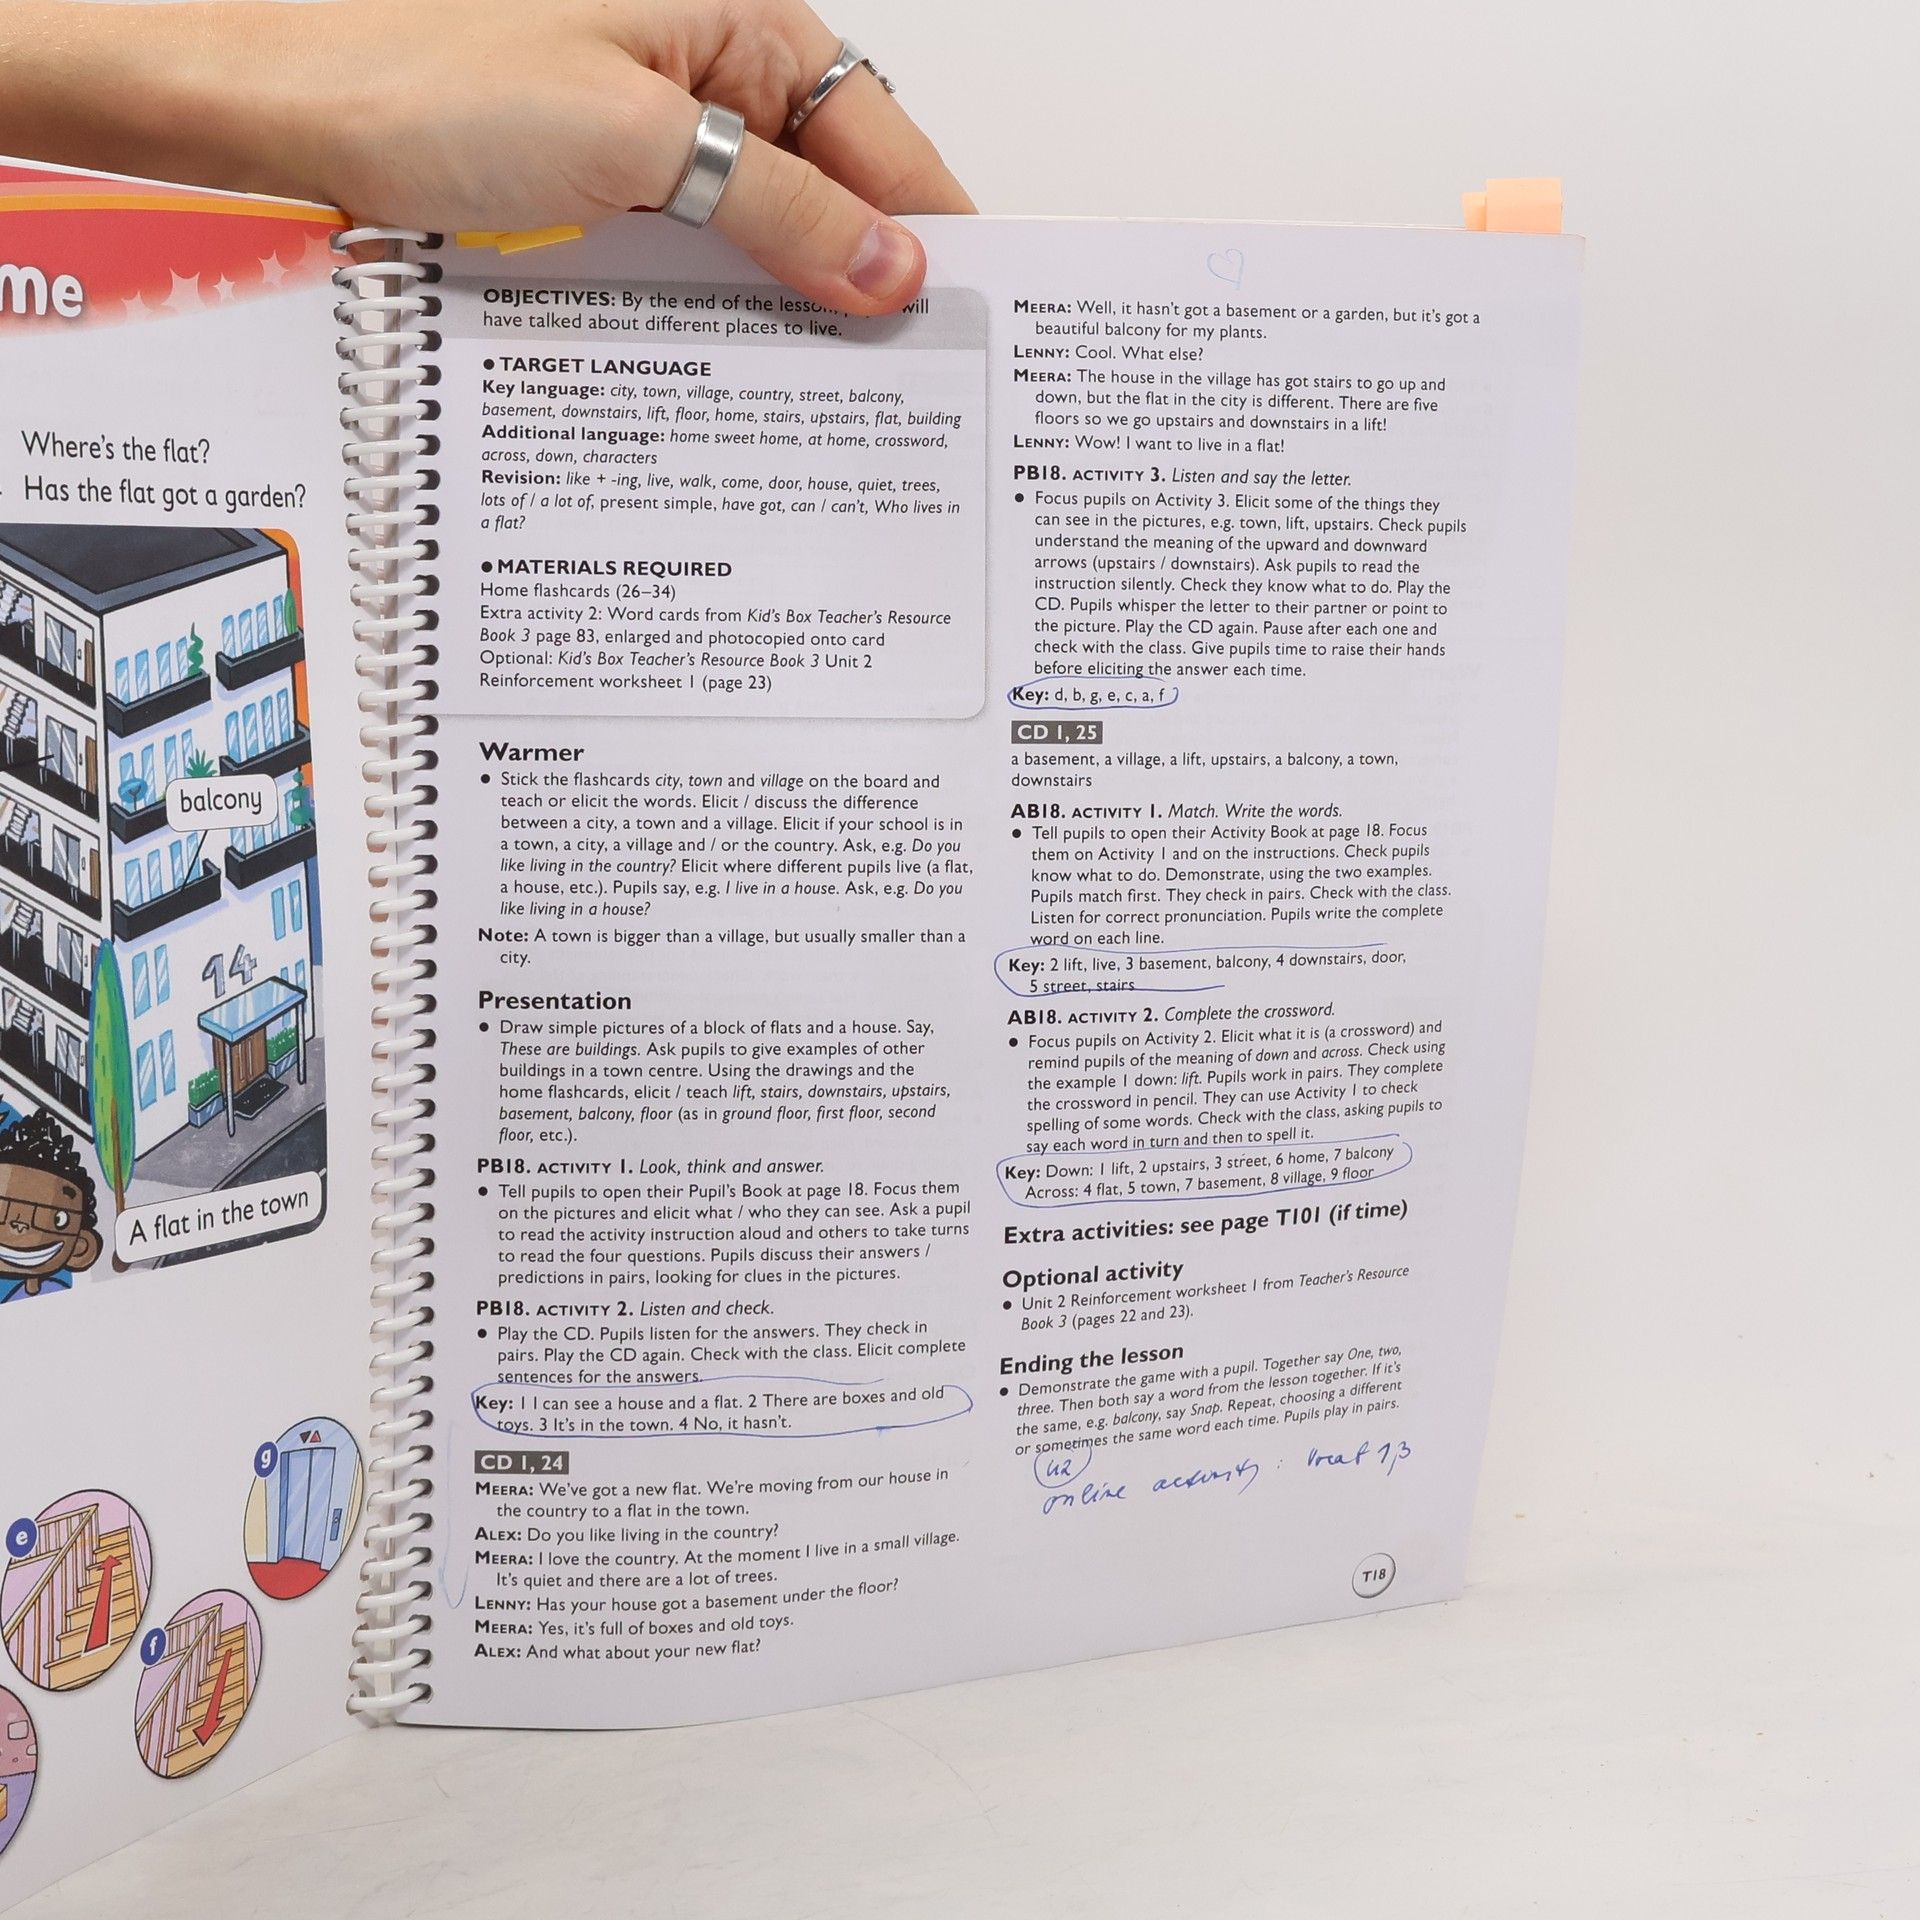 me
Where's the flat?
Has the flat got a garden?
balcony
14
A flat in the town
g
e
f
OBJECTIVES: By the end of the lesson, will
have talked about different places to live.
● TARGET LANGUAGE
Key language: city, town, village, country, street, balcony,
basement, downstairs, lift, floor, home, stairs, upstairs, flat, building
Additional language: home sweet home, at home, crossword,
across, down, characters
Revision: like + -ing, live, walk, come, door, house, quiet, trees,
lots of / a lot of, present simple, have got, can / can't, Who lives in
a flat?
● MATERIALS REQUIRED
Home flashcards (26–34)
Extra activity 2: Word cards from Kid's Box Teacher's Resource
Book 3 page 83, enlarged and photocopied onto card
Optional: Kid's Box Teacher's Resource Book 3 Unit 2
Reinforcement worksheet 1 (page 23)
Warmer
● Stick the flashcards city, town and village on the board and
teach or elicit the words. Elicit / discuss the difference
between a city, a town and a village. Elicit if your school is in
a town, a city, a village and / or the country. Ask, e.g. Do you
like living in the country? Elicit where different pupils live (a flat,
a house, etc.). Pupils say, e.g. I live in a house. Ask, e.g. Do you
like living in a house?
Note: A town is bigger than a village, but usually smaller than a
city.
Presentation
● Draw simple pictures of a block of flats and a house. Say,
These are buildings. Ask pupils to give examples of other
buildings in a town centre. Using the drawings and the
home flashcards, elicit / teach lift, stairs, downstairs, upstairs,
basement, balcony, floor (as in ground floor, first floor, second
floor, etc.).
PB18. ACTIVITY 1. Look, think and answer.
● Tell pupils to open their Pupil's Book at page 18. Focus them
on the pictures and elicit what / who they can see. Ask a pupil
to read the activity instruction aloud and others to take turns
to read the four questions. Pupils discuss their answers /
predictions in pairs, looking for clues in the pictures.
PB18. ACTIVITY 2. Listen and check.
● Play the CD. Pupils listen for the answers. They check in
pairs. Play the CD again. Check with the class. Elicit complete
sentences for the answers.
Key: 1 I can see a house and a flat. 2 There are boxes and old
toys. 3 It's in the town. 4 No, it hasn't.
CD 1, 24
MEERA: We've got a new flat. We're moving from our house in
the country to a flat in the town.
ALEX: Do you like living in the country?
MEERA: I love the country. At the moment I live in a small village.
It's quiet and there are a lot of trees.
LENNY: Has your house got a basement under the floor?
MEERA: Yes, it's full of boxes and old toys.
ALEX: And what about your new flat?
MEERA: Well, it hasn't got a basement or a garden, but it's got a
beautiful balcony for my plants.
LENNY: Cool. What else?
MEERA: The house in the village has got stairs to go up and
down, but the flat in the city is different. There are five
floors so we go upstairs and downstairs in a lift!
LENNY: Wow! I want to live in a flat!
PB18. ACTIVITY 3. Listen and say the letter.
● Focus pupils on Activity 3. Elicit some of the things they
can see in the pictures, e.g. town, lift, upstairs. Check pupils
understand the meaning of the upward and downward
arrows (upstairs / downstairs). Ask pupils to read the
instruction silently. Check they know what to do. Play the
CD. Pupils whisper the letter to their partner or point to
the picture. Play the CD again. Pause after each one and
check with the class. Give pupils time to raise their hands
before eliciting the answer each time.
Key: d, b, g, e, c, a, f
CD 1, 25
a basement, a village, a lift, upstairs, a balcony, a town,
downstairs
AB18. ACTIVITY 1. Match. Write the words.
● Tell pupils to open their Activity Book at page 18. Focus
them on Activity 1 and on the instructions. Check pupils
know what to do. Demonstrate, using the two examples.
Pupils match first. They check in pairs. Check with the class.
Listen for correct pronunciation. Pupils write the complete
word on each line.
Key: 2 lift, live, 3 basement, balcony, 4 downstairs, door,
5 street, stairs
AB18. ACTIVITY 2. Complete the crossword.
● Focus pupils on Activity 2. Elicit what it is (a crossword) and
remind pupils of the meaning of down and across. Check using
the example 1 down: lift. Pupils work in pairs. They complete
the crossword in pencil. They can use Activity 1 to check
spelling of some words. Check with the class, asking pupils to
say each word in turn and then to spell it.
Key: Down: 1 lift, 2 upstairs, 3 street, 6 home, 7 balcony
Across: 4 flat, 5 town, 7 basement, 8 village, 9 floor
Extra activities: see page T101 (if time)
Optional activity
● Unit 2 Reinforcement worksheet 1 from Teacher's Resource
Book 3 (pages 22 and 23).
Ending the lesson
● Demonstrate the game with a pupil. Together say One, two,
three. Then both say a word from the lesson together. If it's
the same, e.g. balcony, say Snap. Repeat, choosing a different
or sometimes the same word each time. Pupils play in pairs.
U2
online activity : 1,3
T18